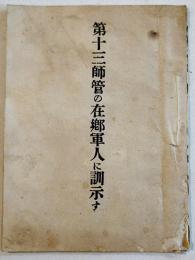 第十三師管の在鄕軍人に訓示す